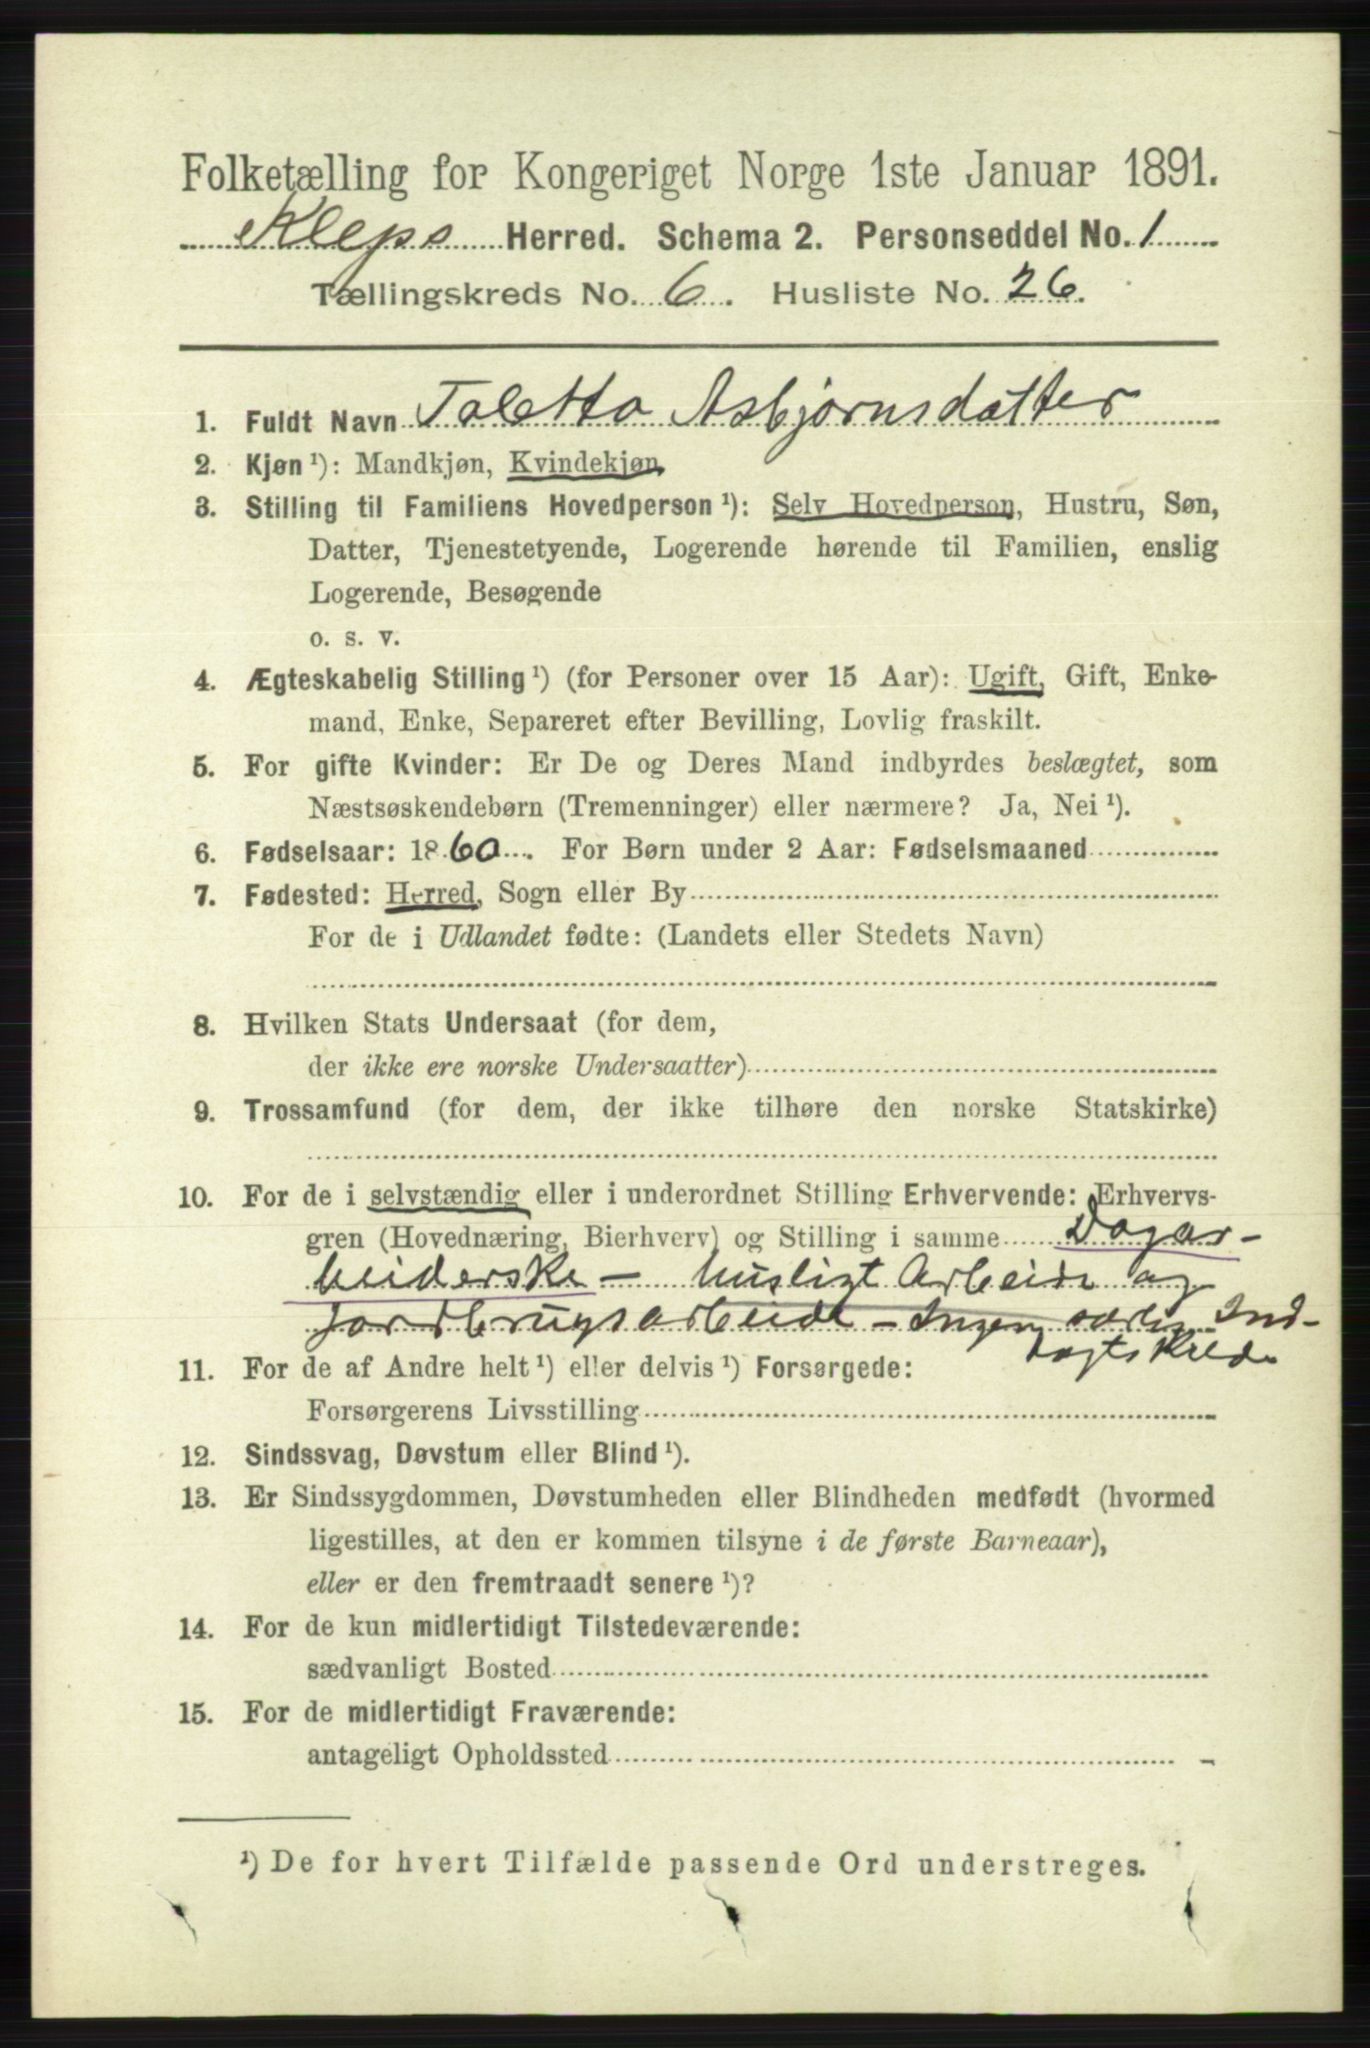 Folketælling for Kongeriget Norge 1ste Januar 1891.
Klepps Herred. Schema 2. Personseddel No. 1
Tællingskreds No. 6. Husliste No. 26.
1. Fuldt Navn Taletta Asbjørnsdatter
2. Kjøn ¹): Mandkjøn, Kvindekjøn
3. Stilling til Familiens Hovedperson ¹): Selv Hovedperson, Hustru, Søn,
Datter, Tjenestetyende, Logerende hørende til Familien, enslig
Logerende, Besøgende
o. s. v.
4. Ægteskabelig Stilling ¹) (for Personer over 15 Aar): Ugift, Gift, Enke-
mand, Enke, Separeret efter Bevilling, Lovlig fraskilt.
5. For gifte Kvinder: Er De og Deres Mand indbyrdes beslægtet, som
Næstsøskendebørn (Tremenninger) eller nærmere? Ja, Nei ¹).
6. Fødselsaar: 1860. For Børn under 2 Aar: Fødselsmaaned
7. Fødested: Herred, Sogn eller By
For de i Udlandet fødte: (Landets eller Stedets Navn)
8. Hvilken Stats Undersaat (for dem,
der ikke ere norske Undersaatter)
9. Trossamfund (for dem, der ikke tilhøre den norske Statskirke)
10. For de i selvstændig eller i underordnet Stilling Erhvervende: Erhvervs-
gren (Hovednæring, Bierhverv) og Stilling i samme Dagar-
beiderske - husligt Arbeide og
Jordbrugsarbeide - Ingen særlig Ind-
tægtskilde
11. For de af Andre helt ¹) eller delvis ¹) Forsørgede:
Forsørgerens Livsstilling
12. Sindssvag, Døvstum eller Blind ¹).
13. Er Sindssygdommen, Døvstumheden eller Blindheden medfødt (hvormed
ligestilles, at den er kommen tilsyne i de første Barneaar),
eller er den fremtraadt senere ¹)?
14. For de kun midlertidigt Tilstedeværende:
sædvanligt Bosted
15. For de midlertidigt Fraværende:
antageligt Opholdssted
¹) De for hvert Tilfælde passende Ord understreges.